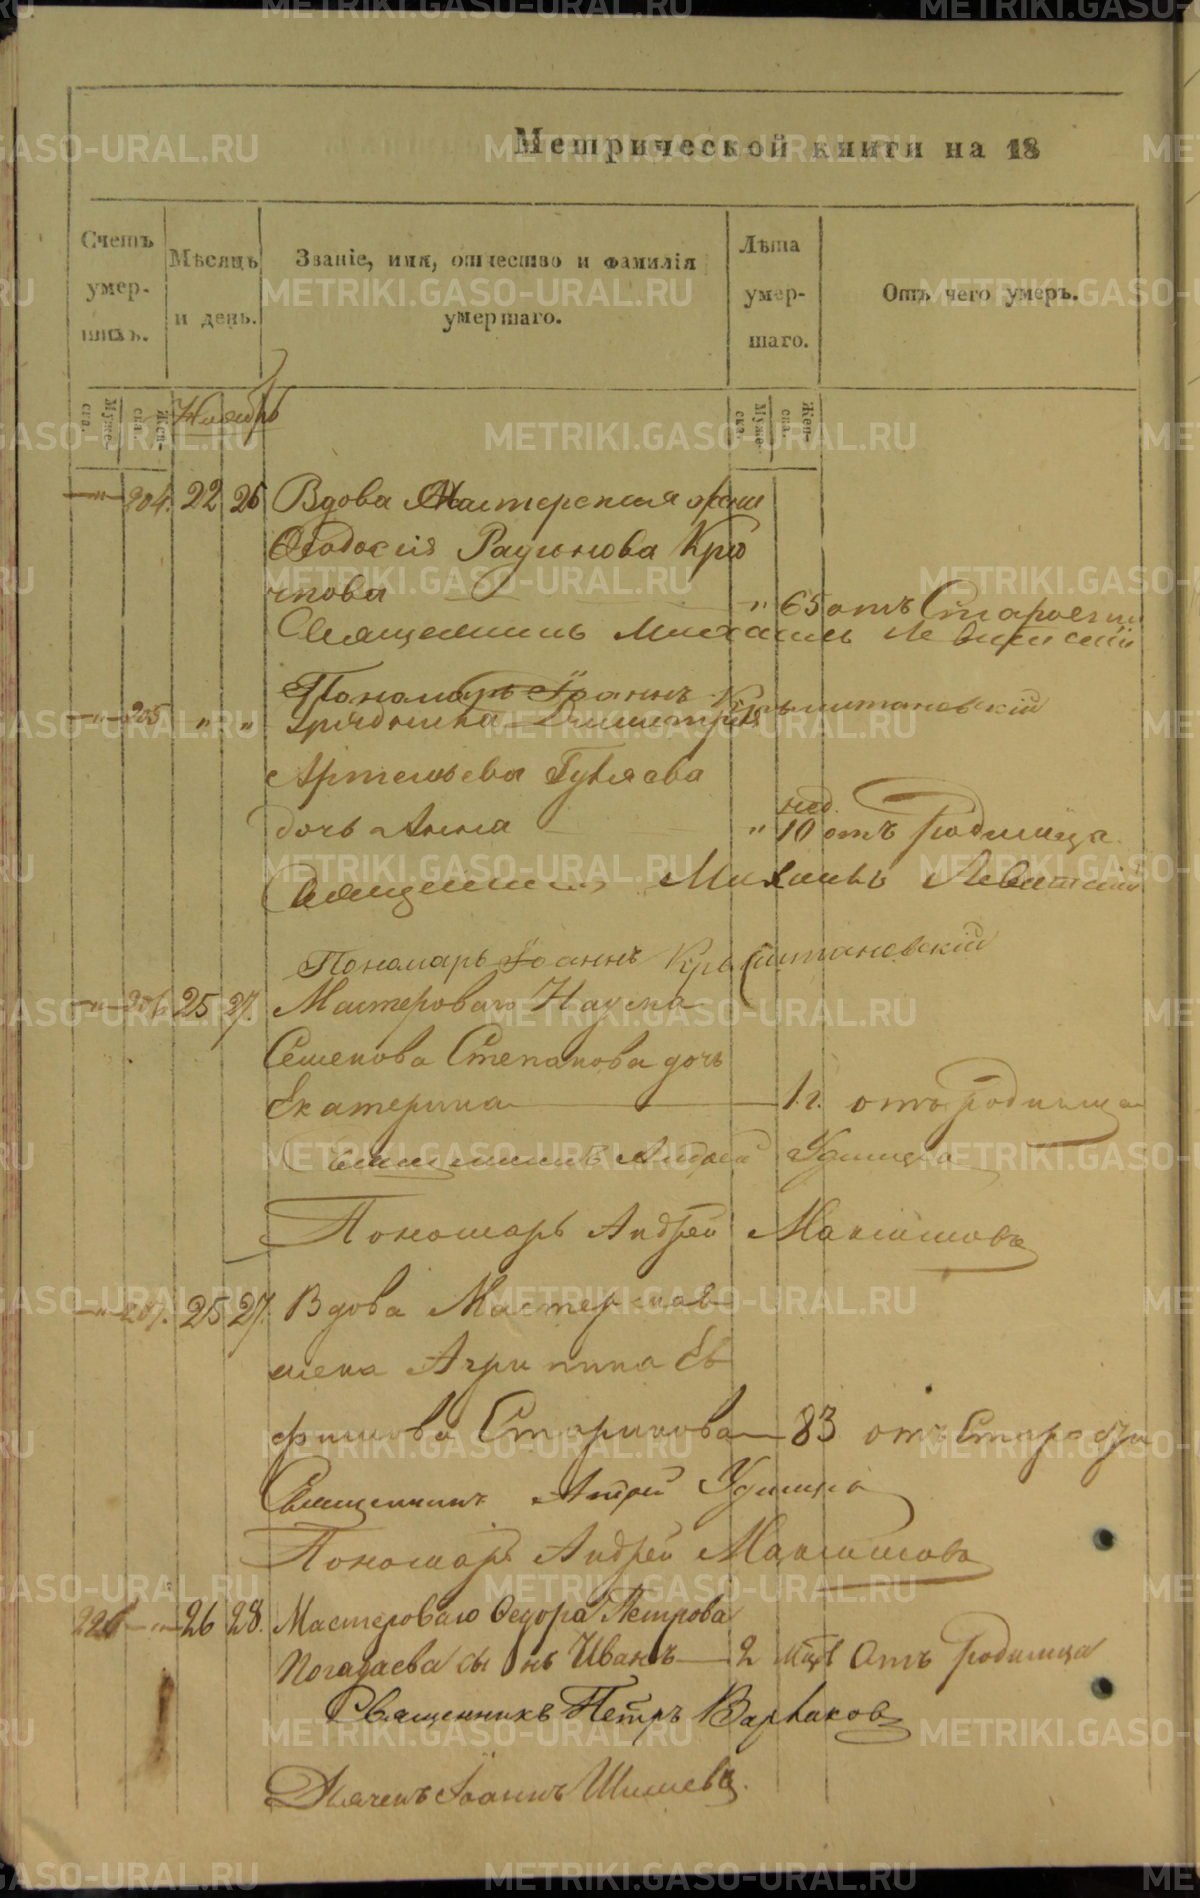 Метрической книги на 18
Счетъ умер-шихъ.
Мѣсяцъ и день.
Званіе, имя, отчество и фамилія умершаго.
Лѣта умер-шаго.
Отъ чего умеръ.
Муже-ска.
Жен-ска.
Ноябрь
Муже-ска.
Жен-ска.
204. 22 26 Вдова Мастерская жена
Феодосія Родіонова Крю
чкова " 65 отъ Старости
Священникъ Михаилъ Левитскій
Пономарь Іоаннъ Крыштановскій
205 " " Урядника Димитрія
Артемьева Гуляева
нед.
дочь Анна " 10 отъ Родимца
Священникъ Михаилъ Левитскій
Пономарь Іоаннъ Крыштановскій
206 25 27. Мастероваго Наума
Семенова Степанова дочь
Екатерина 1.г. отъ Родимца
Священникъ Андрей Удинцевъ
Пономарь Андрей Максимовъ
207. 25 27. Вдова Мастерская
жена Агрипина Ев
фимова Старикова 83 отъ Старости
Священникъ Андрей Удинцевъ
Пономарь Андрей Максимовъ
226 26 28. Мастероваго Федора Петрова
Погадаева сынъ Иванъ 2 мцѣ Отъ Родимца
Священникъ Петръ Варлаков
Дьячекъ Іоаннъ Шишевъ.
METRIKI.GASO-URAL.RU